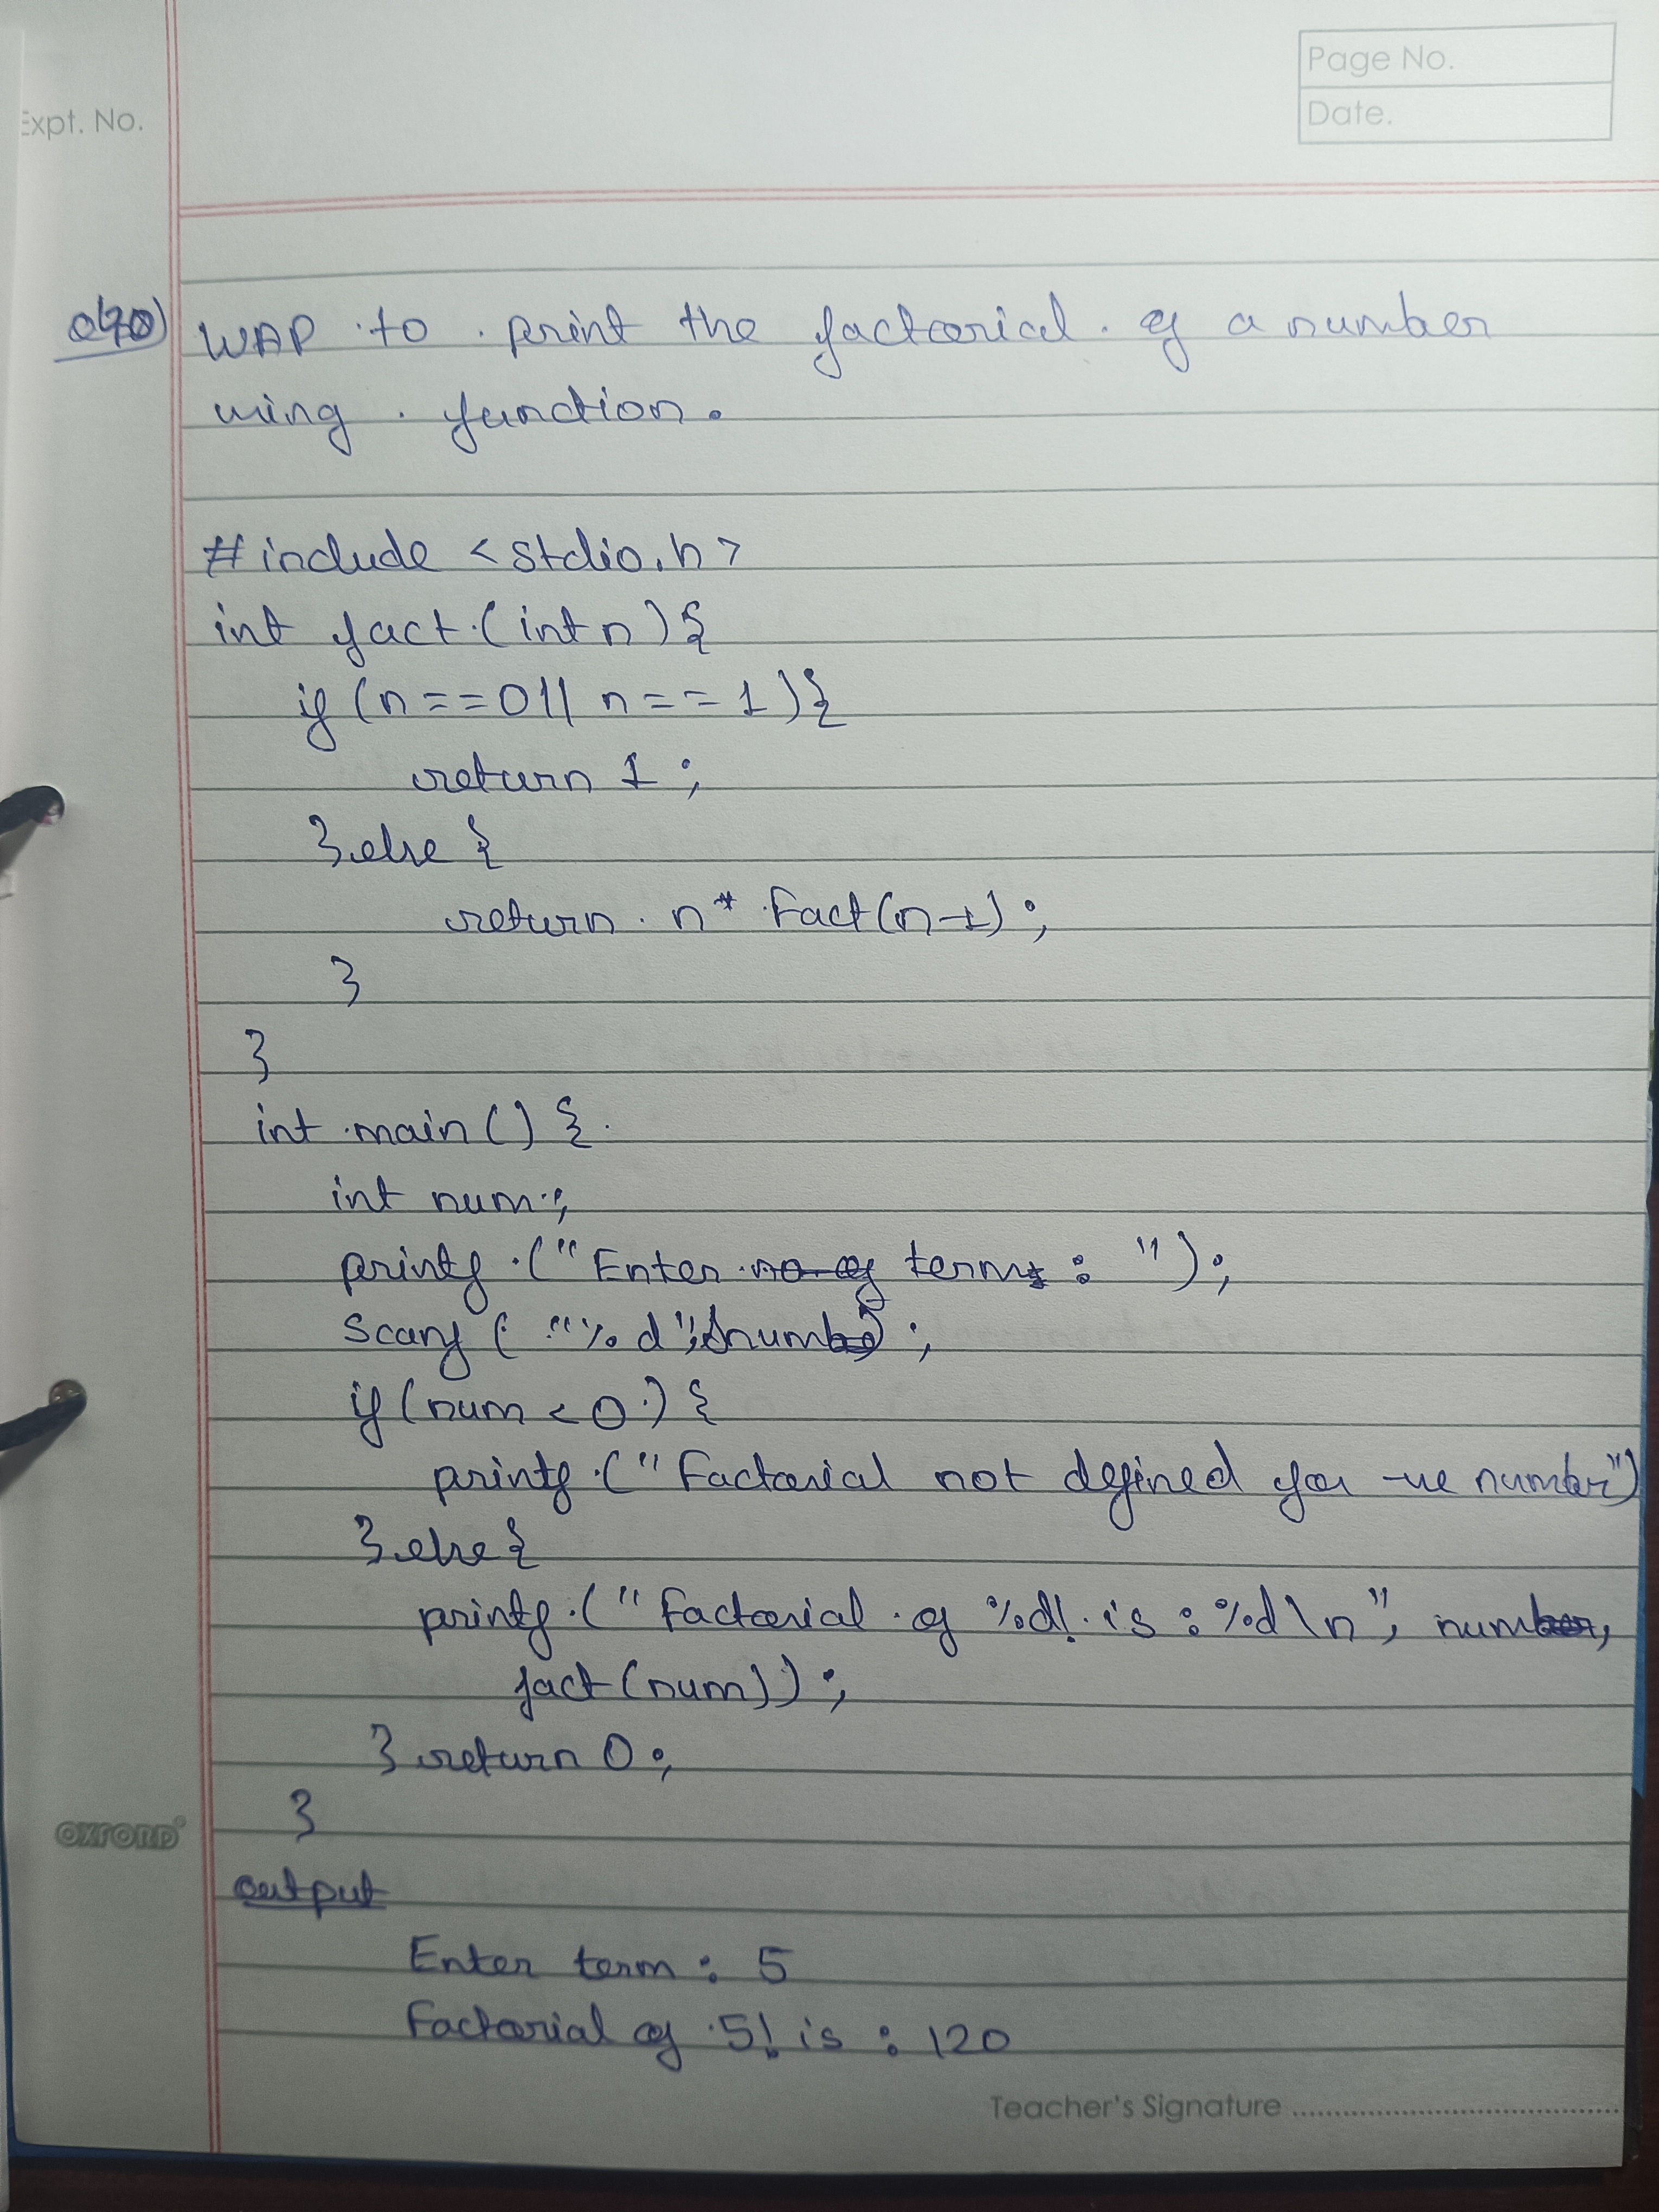 Page No.
Date.
Expt. No.
WAP to print the factorial of a number
using function.
#include <stdio.h>
int fact (int n) {
if (n==0 || n==1) {
return 1;
} else {
return n* Fact(n-1);
}
}
int main() {
int num;
printf ("Enter term : ");
scanf ( "%d", &num) ;
if (num < 0) {
printf ("Factorial not defined for -ve number")
} else {
printf ("Factorial of %d! is : %d\n", num,
fact (num));
} return 0;
}
output
Enter term : 5
Factorial of 5! is : 120
OXFORD
Teacher's Signature